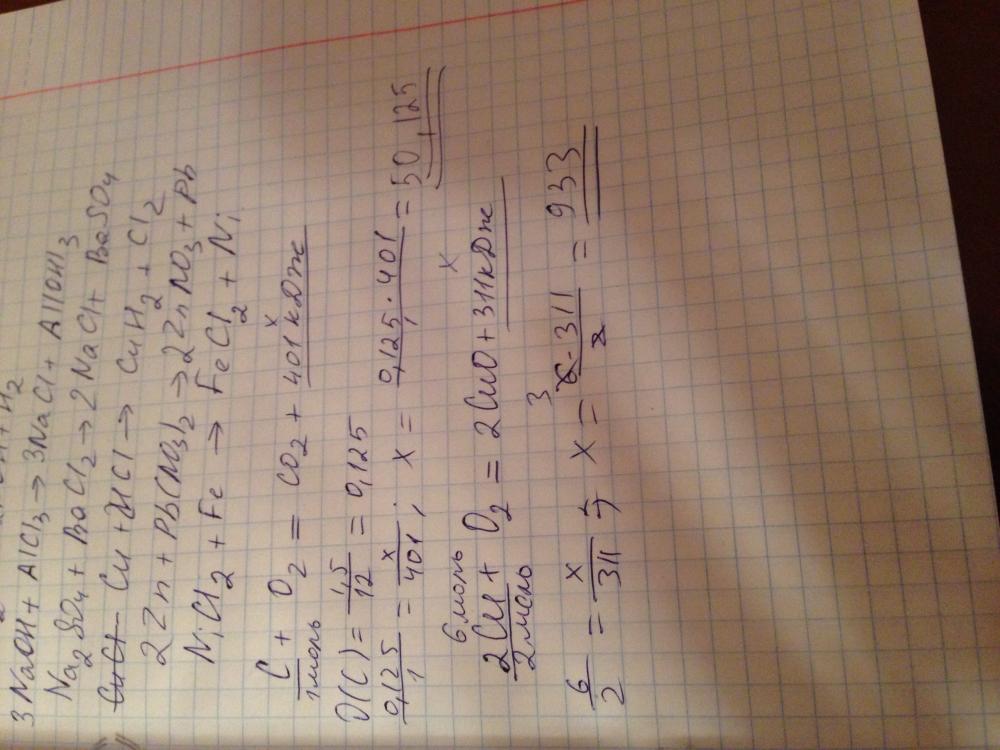 3NaOH + AlCl3 → 3NaCl + Al(OH)3
Na2SO4 + BaCl2 → 2NaCl + BaSO4
Cu + 2HCl → CuH2 + Cl2
2Zn + Pb(NO3)2 → 2ZnNO3 + Pb
NiCl2 + Fe → FeCl2 + Ni
x
C + O2 = CO2 + 401кДж
1моль
ν(C) = 1,5/12 = 0,125
0,125/1 = x/401 ; x = 0,125·401/1 = 50,125
6моль x
2Cu + O2 = 2CuO + 311кДж
2моль
3
6/2 = x/311 ; x = 6·311/2 = 933